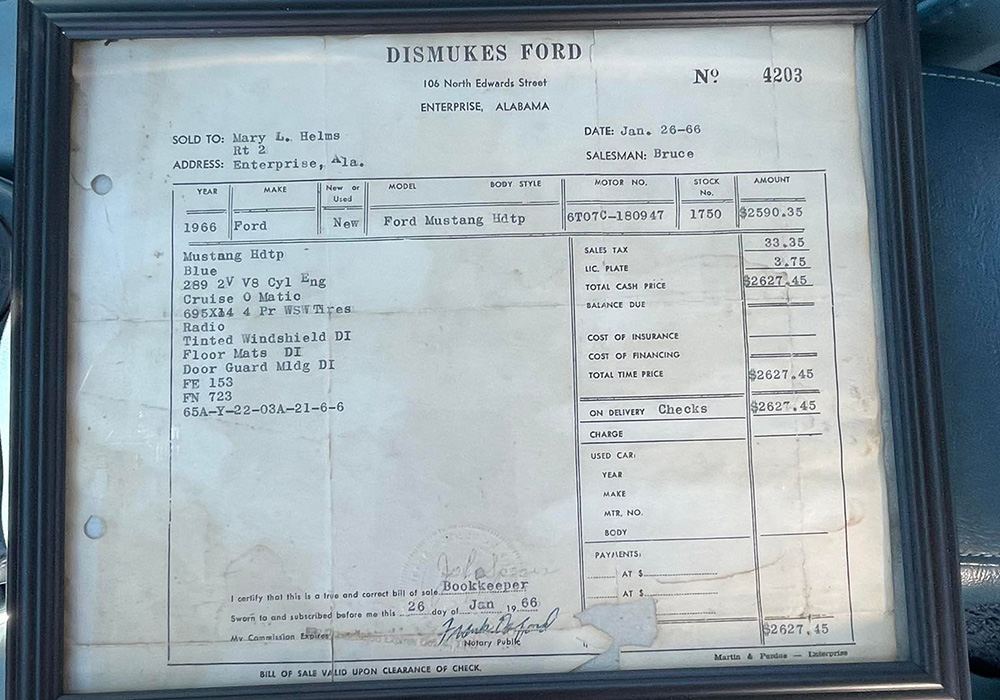 DISMUKES FORD
106 North Edwards Street
ENTERPRISE, ALABAMA
Nº 4203
SOLD TO: Mary L. Helms
Rt 2
ADDRESS: Enterprise, Ala.
DATE: Jan. 26-66
SALESMAN: Bruce
YEAR MAKE New or Used MODEL BODY STYLE MOTOR NO. STOCK No. AMOUNT
1966 Ford New Ford Mustang Hdtp 6T07C-180947 1750 $2590.35
Mustang Hdtp
Blue
289 2V V8 Cyl Eng
Cruise O Matic
695X14 4 Pr WSW Tires
Radio
Tinted Windshield DI
Floor Mats DI
Door Guard Mldg DI
FE 153
FN 723
65A-Y-22-03A-21-6-6
SALES TAX 33.35
LIC. PLATE 3.75
TOTAL CASH PRICE $2627.45
BALANCE DUE
COST OF INSURANCE
COST OF FINANCING
TOTAL TIME PRICE $2627.45
ON DELIVERY Checks $2627.45
CHARGE
USED CAR:
YEAR
MAKE
MTR. NO.
BODY
PAYMENTS:
AT $
AT $
$2627.45
Bookkeeper
I certify that this is a true and correct bill of sale
Sworn to and subscribed before me this 26 day of Jan 1966
My Commission Expires
Notary Public
BILL OF SALE VALID UPON CLEARANCE OF CHECK.
Martin & — Enterprise